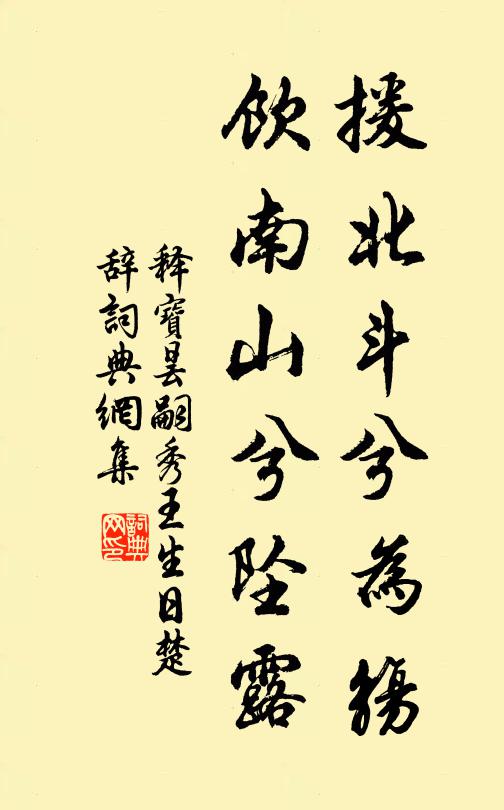 援北斗兮為觴
飲南山兮坠露
释寶昙嗣秀王生日楚
辞詞典網集
詞典网印